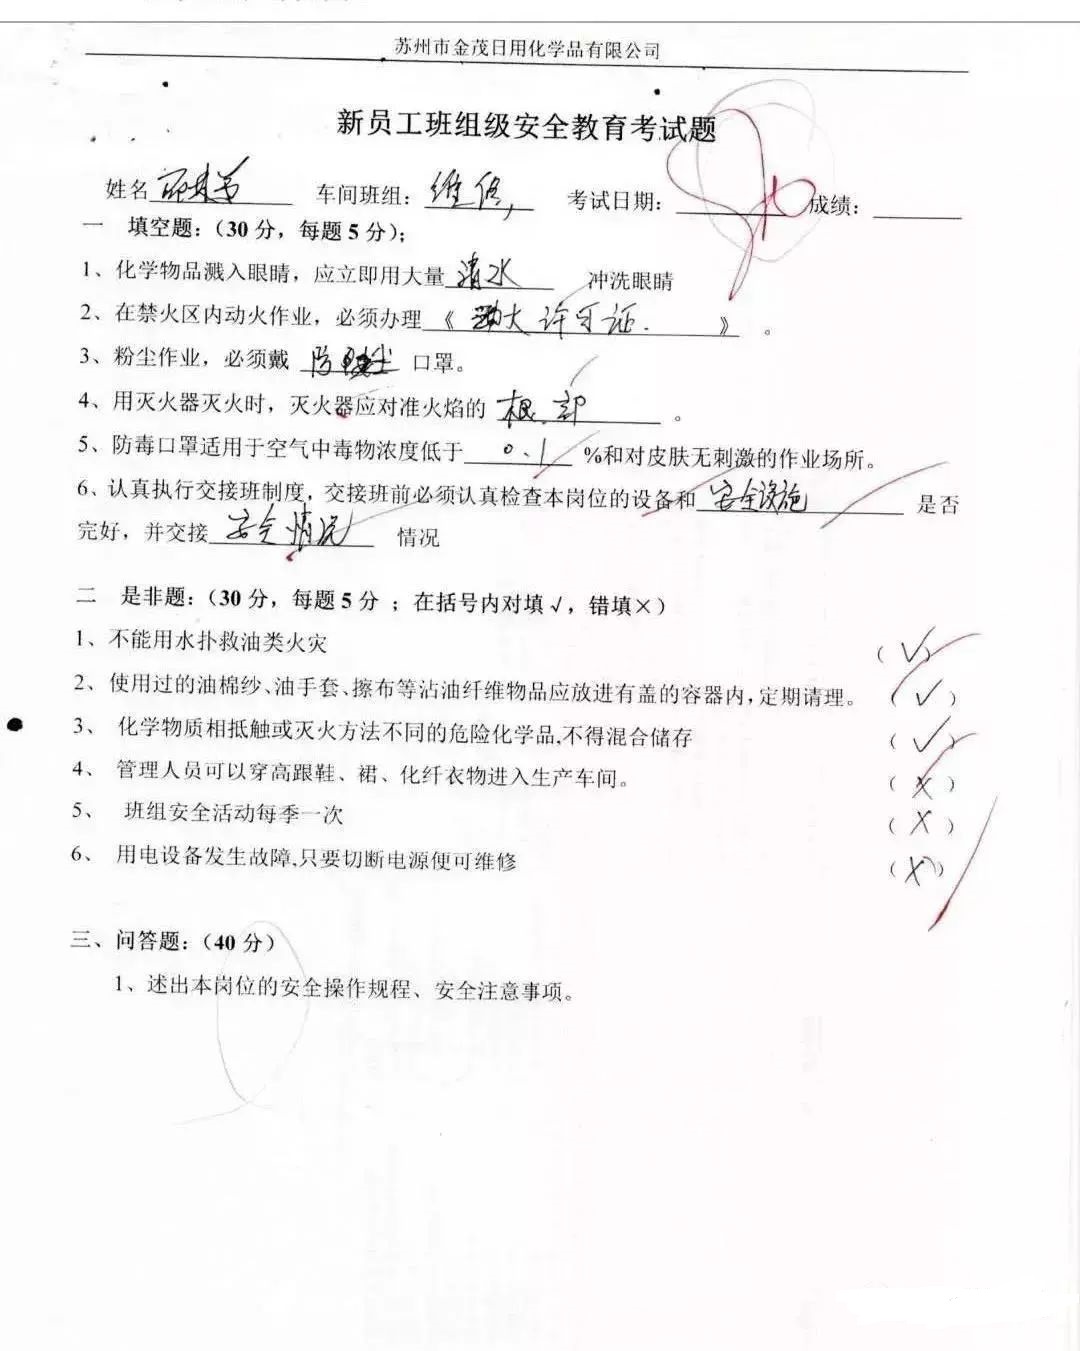 苏州市金茂日用化学品有限公司
新员工班组级安全教育考试题
姓名 车间班组：维修， 考试日期： 成绩：
一 填空题：（30 分，每题 5 分）；
1、化学物品溅入眼睛，应立即用大量清水 冲洗眼睛
2、在禁火区内动火作业，必须办理《 动火许可证. 》 。
3、粉尘作业，必须戴 防尘 口罩。
4、用灭火器灭火时，灭火器应对准火焰的 根部 。
5、防毒口罩适用于空气中毒物浓度低于 0.1 %和对皮肤无刺激的作业场所。
6、认真执行交接班制度，交接班前必须认真检查本岗位的设备和 安全设施 是否
完好，并交接 安全情况 情况
二 是非题：（30 分，每题 5 分 ；在括号内对填√，错填×）
1、不能用水扑救油类火灾 （√）
2、使用过的油棉纱、油手套、擦布等沾油纤维物品应放进有盖的容器内，定期请理。 （√）
3、 化学物质相抵触或灭火方法不同的危险化学品,不得混合储存 （√）
4、 管理人员可以穿高跟鞋、裙、化纤衣物进入生产车间。 （×）
5、 班组安全活动每季一次 （×）
6、 用电设备发生故障,只要切断电源便可维修 （×）
三、问答题：（40 分）
1、述出本岗位的安全操作规程、安全注意事项。